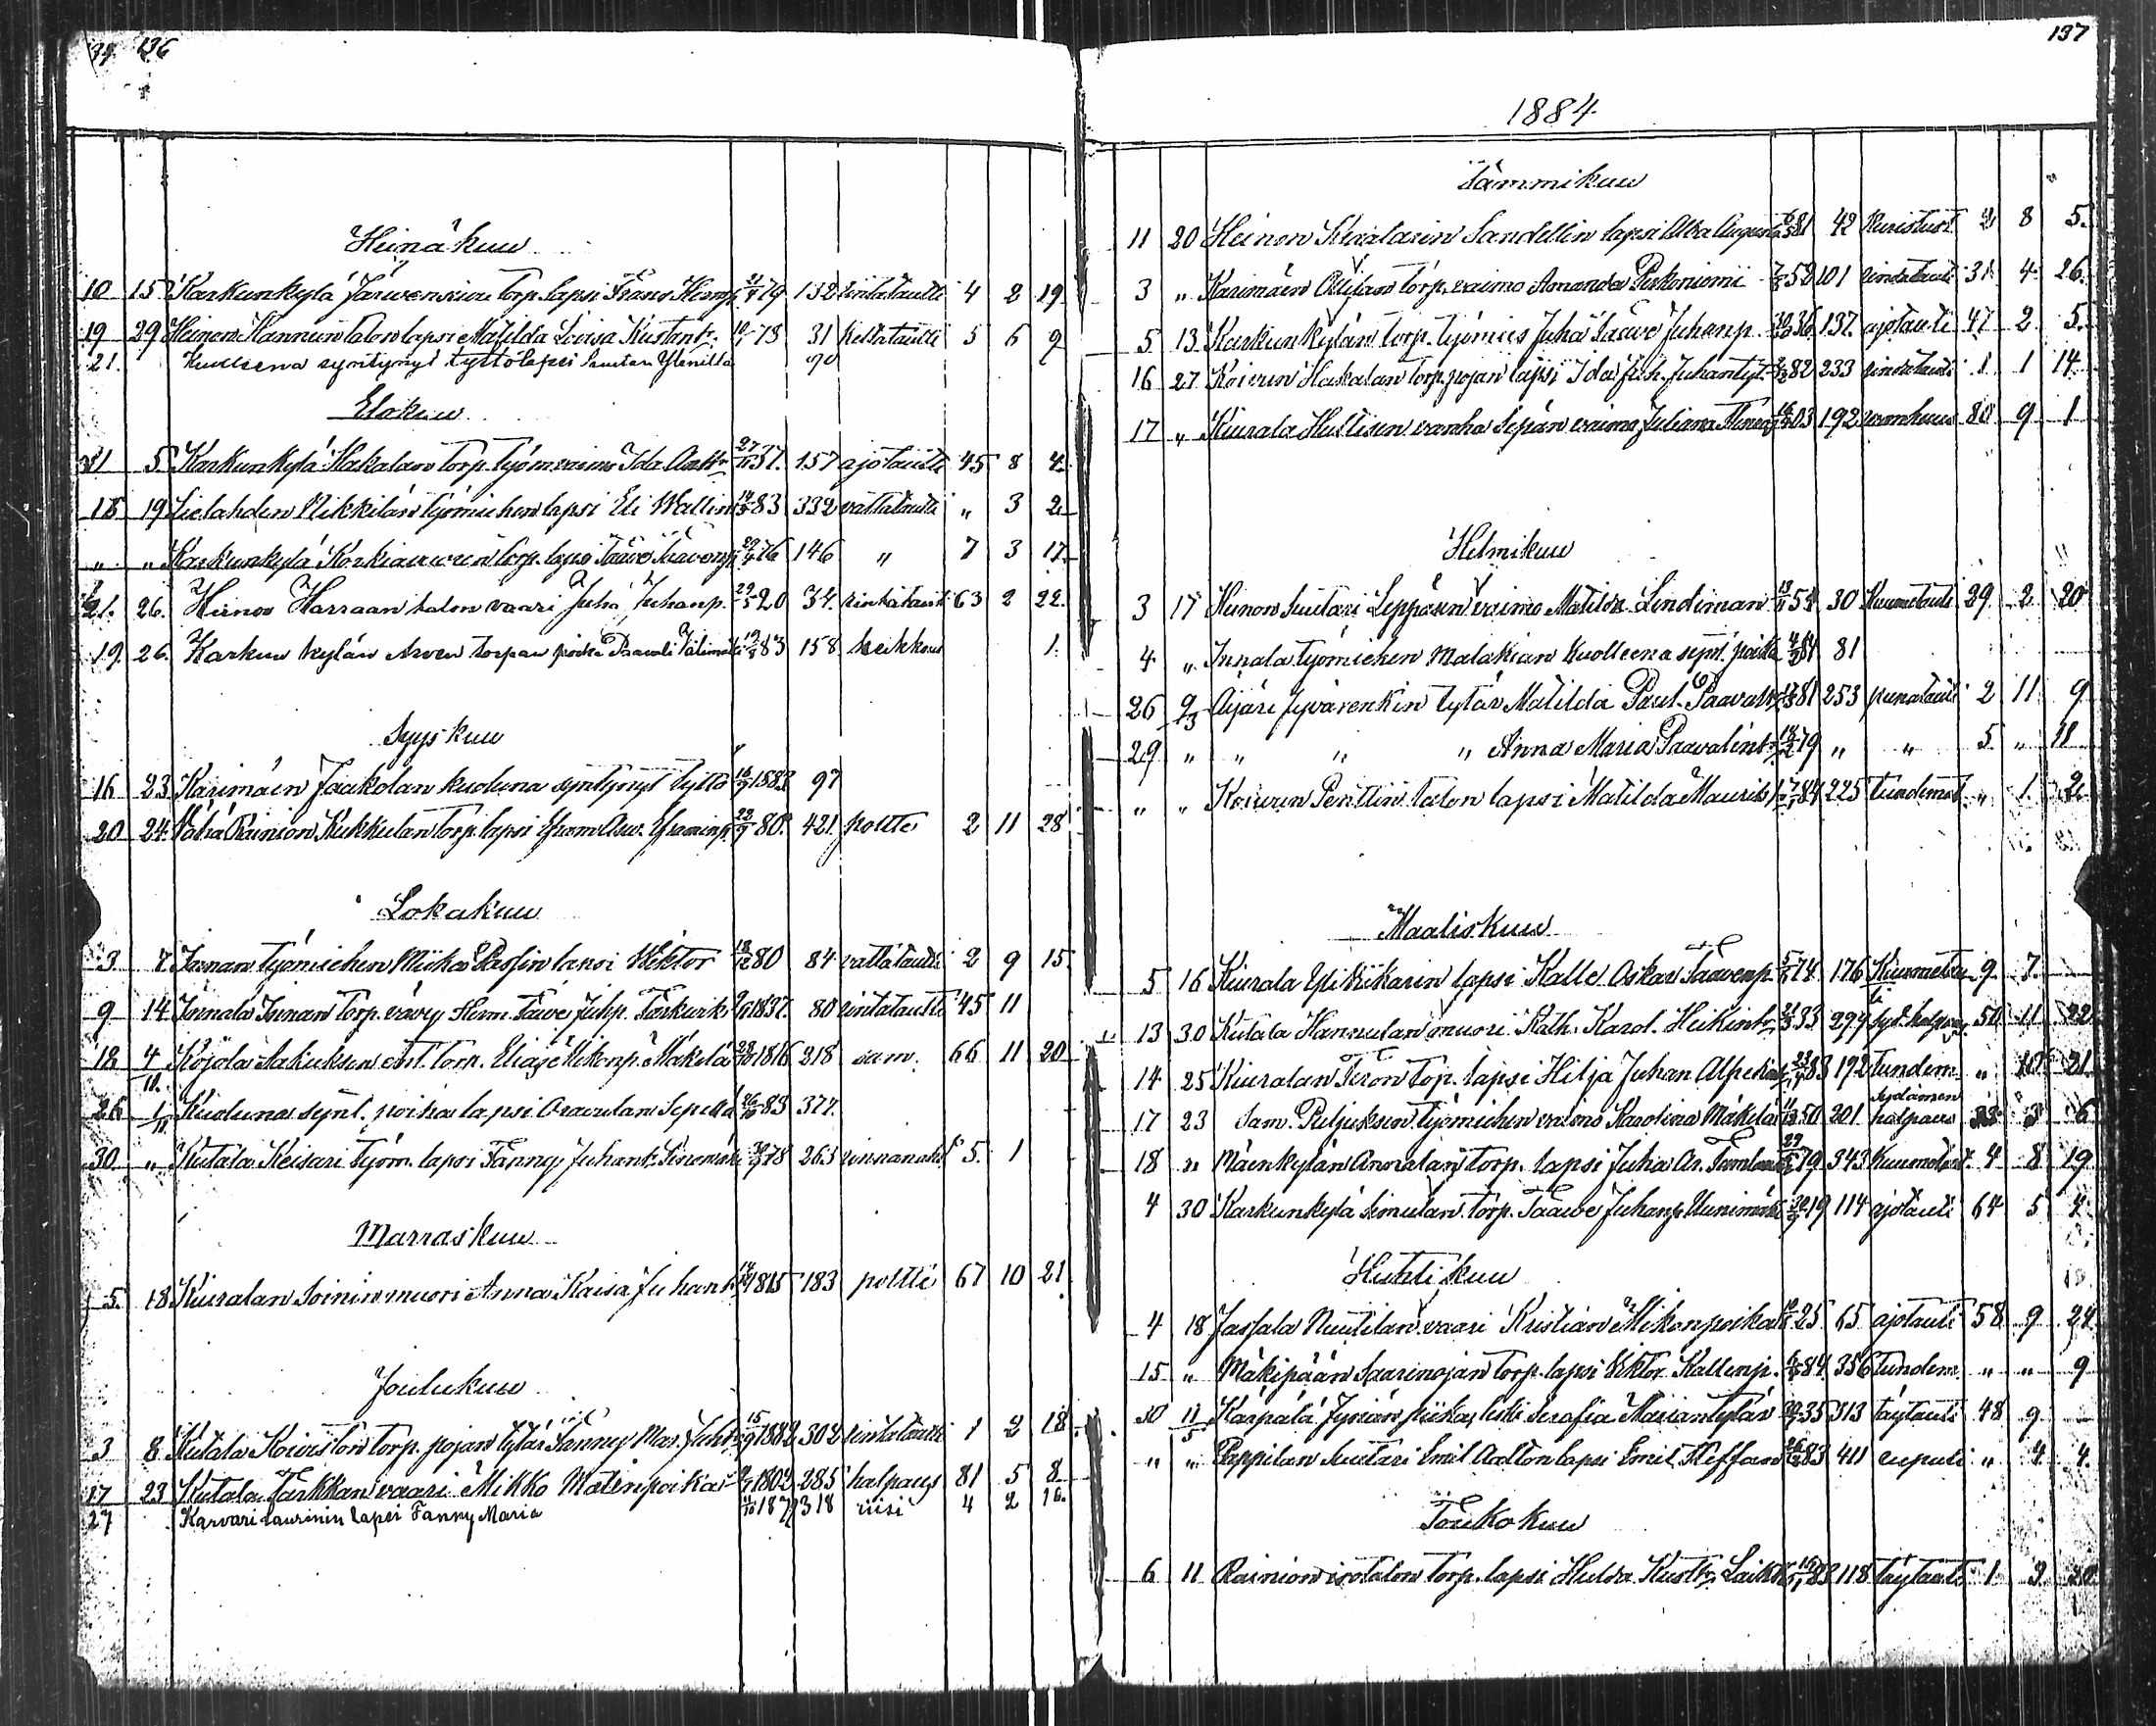 136
Heinäkuu
10 15 Karkunkylä Järvensivu torp. lapsi Frans Herm. 21/4 79 132 rintatauti 4 2 19
19 29 Heinon Hannun talon lapsi Matilda Lovisa Kustantr. 10/1 78 31 keltatauti 5 6 9
21. Kuolleena syntynyt tyttölapsi
Elokuu
31 5 Karkunkylä Hakalan torp. työm. vaimo Ida Antt. 27/11 37. 157 ajotauti 45 8 4
18 19 Sielahden Nikkilän työmiehen lapsi Eli Wallin 83 332 vattatauti „ 3 2
„ „ Karkunkylä Korkiavuoren torp. lapsi Taave Taavenp. 76 146 „ 7 3 17
21. 26. Heinoo Harraan talon vaari Juha Juhanp. 29/5 20 34. rintatauti 63 2 22.
19. 26. Karkun kylän Arven torpan poika Paavali Välimäki 19/8 83 158 heikkous 1.
Syyskuu
16 23 Karimäen Jaakolan kuoluna syntynyt tyttö 16/9 1883 97
20 24. Vähä Rainion Kukkulan torp. lapsi Efram Osw. Eframinp. 22/9 80. 421. poltte 2 11 28
Lokakuu
3. 7. Innan työmiehen Miika Passin lapsi Wiktor 18/12 80 84 vattatauti 2 9 15.
9 14 Innala Innan torp. vävy Herm. Taave Juhp. 1837. 80 rintatauti 45 11
18 4/11. Kojola Sakuksen ent. torp. Elias Mikonp. Mäkelä 28/10 1816 218 sam. 66 11 20
26 1/11 Kuoluna synt. poika lapsi Seppälä 26/10 83 377.
30. „ Kutala Keisari työm. lapsi Fanny Juhant. 78 263 5. 1
Marraskuu
5. 18 Kiuralan Soinin muori Anna Kaisa Juhant. 1815 183 poltte 67 10 21.
Joulukuu
3 8 Kutala Koiviston torp. pojan tytär Fanny Mar. Juht. 15/9 1882 302 rintatauti 1 2 18.
17 23 Kutala Tarkkan vaari Mikko Matinpoika 9/7 1802 285 halpaus 81 5 8
27 Karvari Laurinin lapsi Fanny Maria 11/10 1879 318 riisi 4 2 16.
137
1884
Tammikuu
11 20 Heinon Sandellin lapsi Alba Augusta 6/5 81 42 kuristust 2 8 5.
3 „ Karimäen Ollilan torp. vaimo Amanda 52 101 rintatauti 31 4 26.
5 13 Karkunkylän torp. työmies Juha Taave Juhanp. 36 137. ajotauti 47 2 5.
16 27 Koivun Hakalan torp. pojan lapsi Ida Juh. Juhantyt. 82 233 rintatauti 1 1 14
17 „ Kiurala Hullisen vanha Sepän vaimo Juliana 03 192 vanhuus 80 9 1
Helmikuu
3 17 Heinon Suutari Leppäsen vaimo Matilda Lindiman 13/11 54 30 Kuumetauti 29 2 20
4 „ Innala työmiehen Malakian kuolleena synt. poika 4/2 84 81
26 9/3 Äijäri Jyvärenkin tytär Matilda Paul. Paavalt. 81 253 punatauti 2 11 9
29 „ „ „ „ Anna Maria Paavalint. 18/2 79 „ „ 5 „ 11
„ „ Koivun Penttin talon lapsi Matilda Maurits 84 225 tundemat. „ 1 2
Maaliskuu
5 16 Kiurala Yli Kiikarin lapsi Kalle Oskar Taavenp. 74 176 Kuumetauti 9 7.
13 30 Kutala Hannulan muori Kath. Karol. Heikint. 21/3 33 294 Syd. halpaus 50 11 22
14 25 Kiuralan Teron Top. lapsi Hilja Juhan 83 192 Tundem. „ 10 21.
17 23 Sam. Piljuksen työmiehen vaimo Karolina Mäkelä 11/12 50 201 Sydämen halpaus 33 3 6
18 „ Mäenkylän Anuralan torp. lapsi Juha Ar. 79 343 Kuumetaut. 4 8 19
4 30 Karkunkylä Simulan torp. Taave Juhanp. 19 114 ajotauti 64 5 4
Huhtikuu
4 18 Jassala Nuutilan vaari Kristian Mikonpoika 25 65 ajotauti 58 9 24
15 „ Mäkipään Saarinojan torp. lapsi Viktor Kallenp. 84 356 tundem „ „ 9
30 11/5 Karpala Jyriän piika, leski Serafia Mariantytär 35 313 täytauti 48 9
„ „ Pappilan Suutari Emil Aalton lapsi Emil Steffan 83 411 „ 4 4.
Toukokuu
6 11 Rainion isotalon torp. lapsi Hulda Kustt. 83 118 täytauti 1. 3. 20